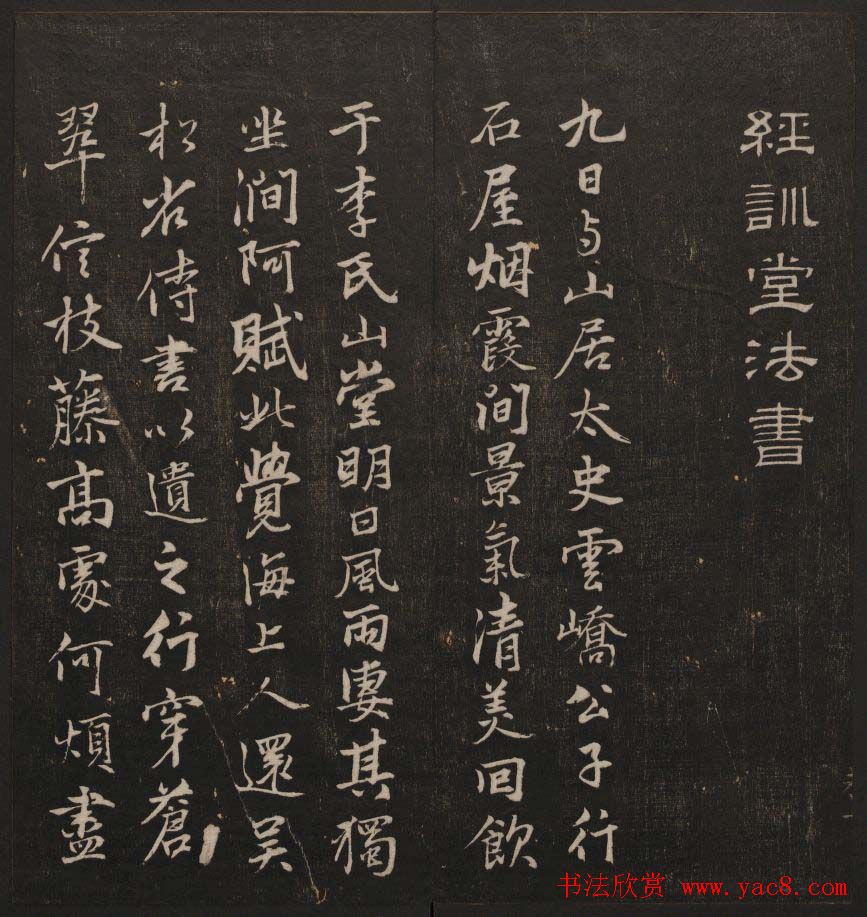 經訓堂法書
九日与山居太史雲嶠公子行
石屋烟霞间景氣清美回飲
于李氏山堂明日風雨凄其獨
坐澗阿賦此覺海上人還吴
松省侍書以遺之行穿蒼
翠信枝藤高處何煩盡
书法欣赏 www.yac8.com